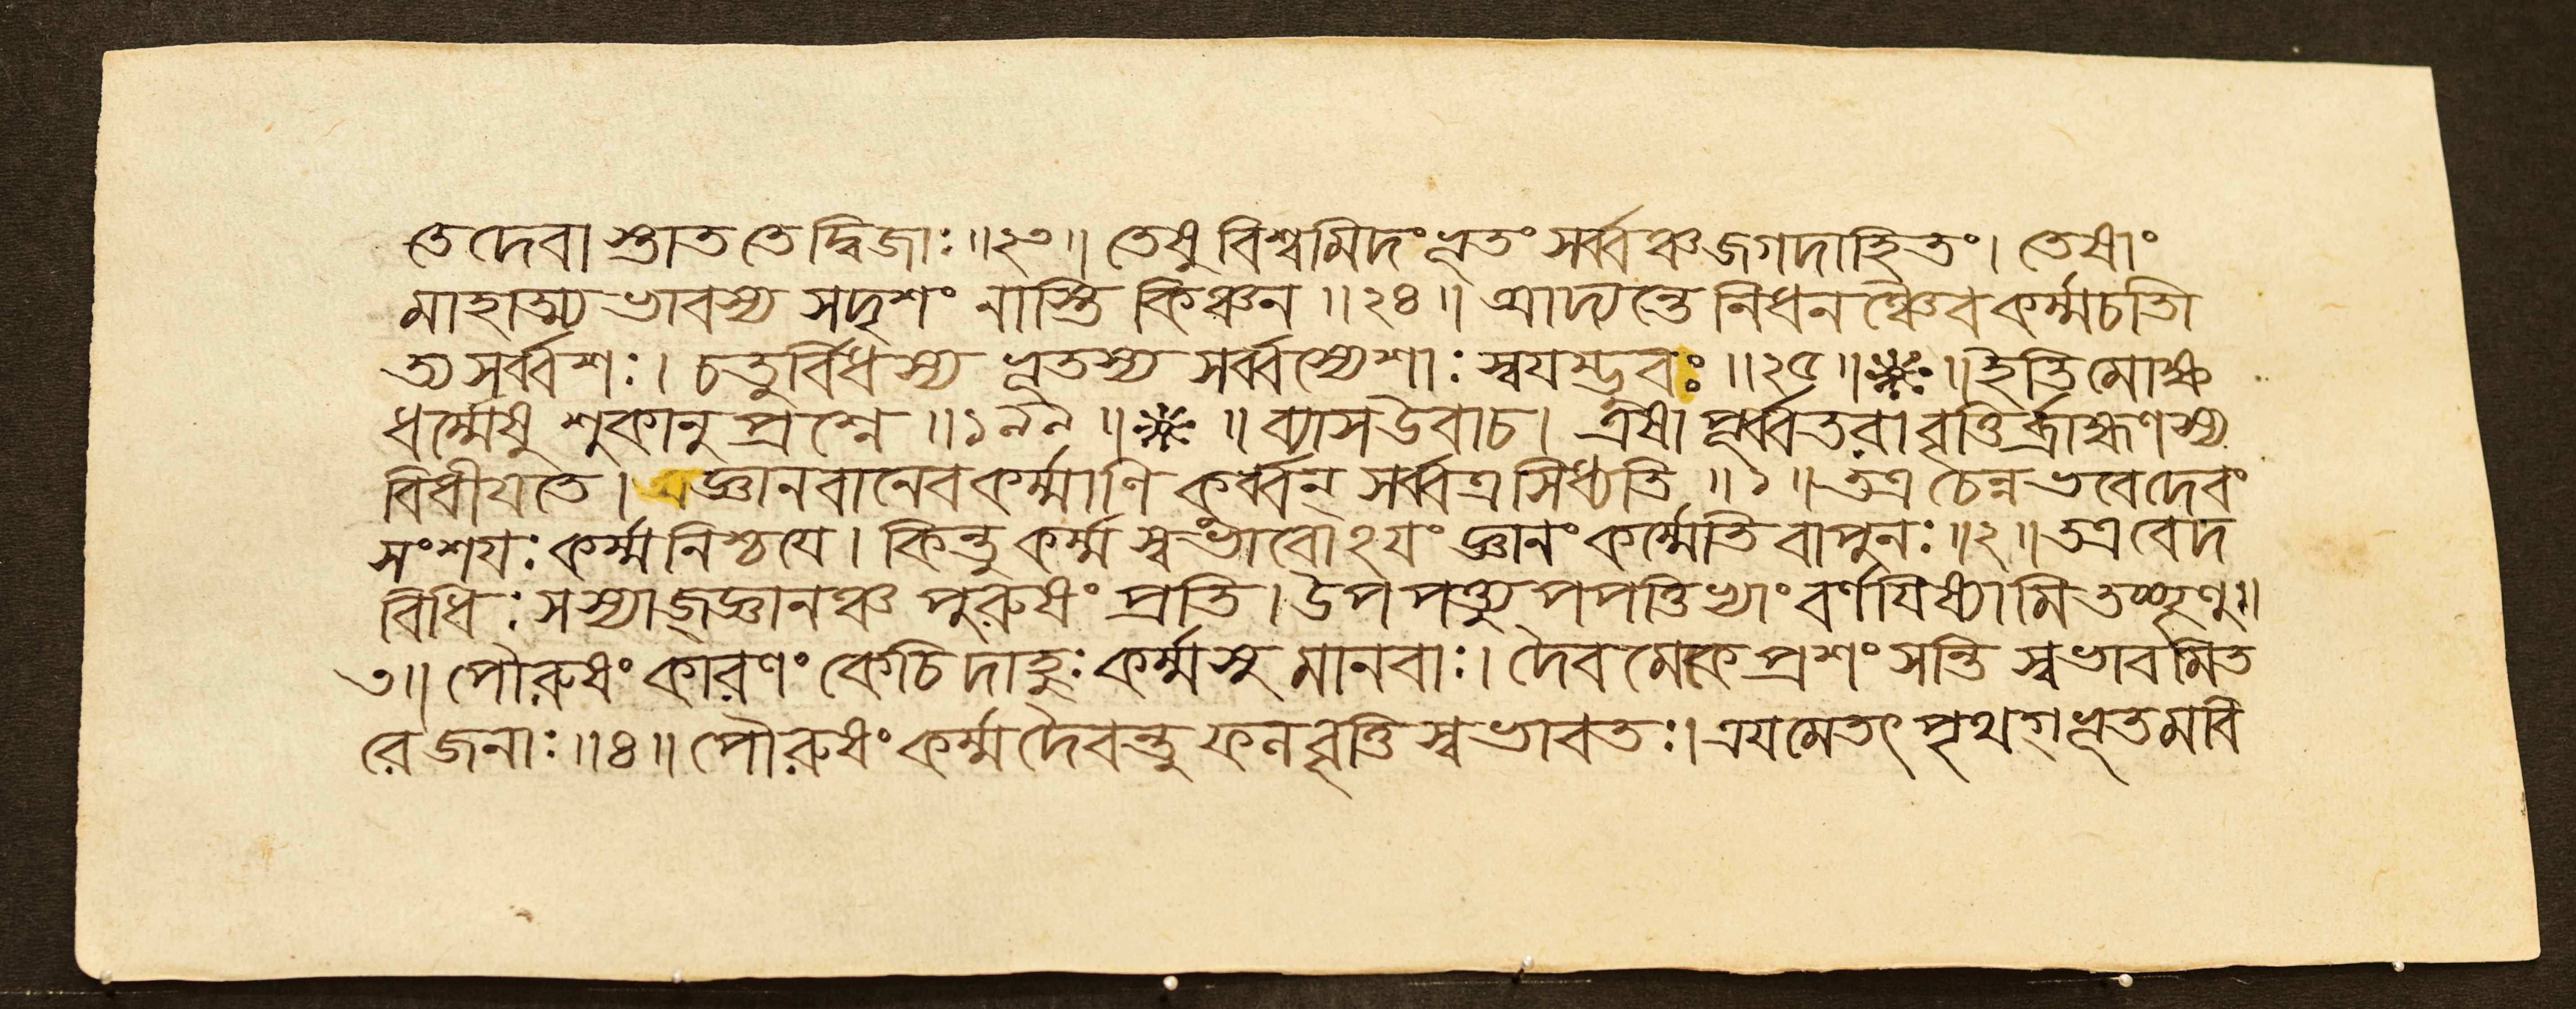 তে দেবা স্তাত তে দ্বিজাঃ ॥২৩॥ তেষু বিশ্বমিদং ভূতং সর্ব্বঞ্চ জগদাহিতং। তেষাং
মাহাত্ম্য ভাবস্য সদৃশং নাস্তি কিঞ্চন ॥২৪॥ আদ্যন্তে নিধনঞ্চৈব কর্ম্মচাতি
ত্য সর্ব্বশঃ। চতুর্ব্বিধস্য ভূতস্য সর্ব্বস্যেশাঃ স্বয়ম্ভুবঃ ॥২৫॥❈॥ ইতি মোক্ষ
ধর্ম্মেষু শুকানুপ্রশ্নে ॥১৯৯॥❈॥ ব্যাস উবাচ। এষা পূর্ব্বতরা বৃত্তির্ব্রাহ্মণস্য
বিধীয়তে। জ্ঞানবানেব কর্ম্মাণি কুর্ব্বন্ সর্ব্বত্র সিধ্যতি ॥১॥ তত্র চেন্ন ভবেদেবং
সংশয়ঃ কর্ম্মনিশ্চয়ে। কিন্তু কর্ম্ম স্বভাবোঽয়ং জ্ঞানং কর্ম্মেতি বা পুনঃ ॥২॥ তত্র বেদ
বিধিঃ সস্যাজ্জ্ঞানঞ্চ পুরুষং প্রতি। উপপত্ত্যুপপত্তিভ্যাং বর্ণয়িষ্যামি তচ্ছৃণু ॥
৩॥ পৌরুষং কারণং কেচিদাহুঃ কর্ম্মসু মানবাঃ। দৈবমেকে প্রশংসন্তি স্বভাবমিত
রে জনাঃ ॥৪॥ পৌরুষং কর্ম্ম দৈবন্তু ফলবৃত্তি স্বভাবতঃ। ত্রয়মেতৎ পৃথগ্ভূতমবি